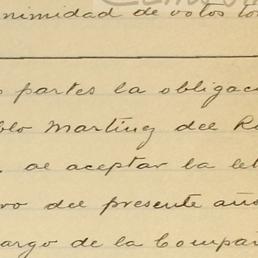 nimidad de votos to
s partes la obligac
blo Martinz del R
al aceptar la let
ro del presente año
argo de la Compañ